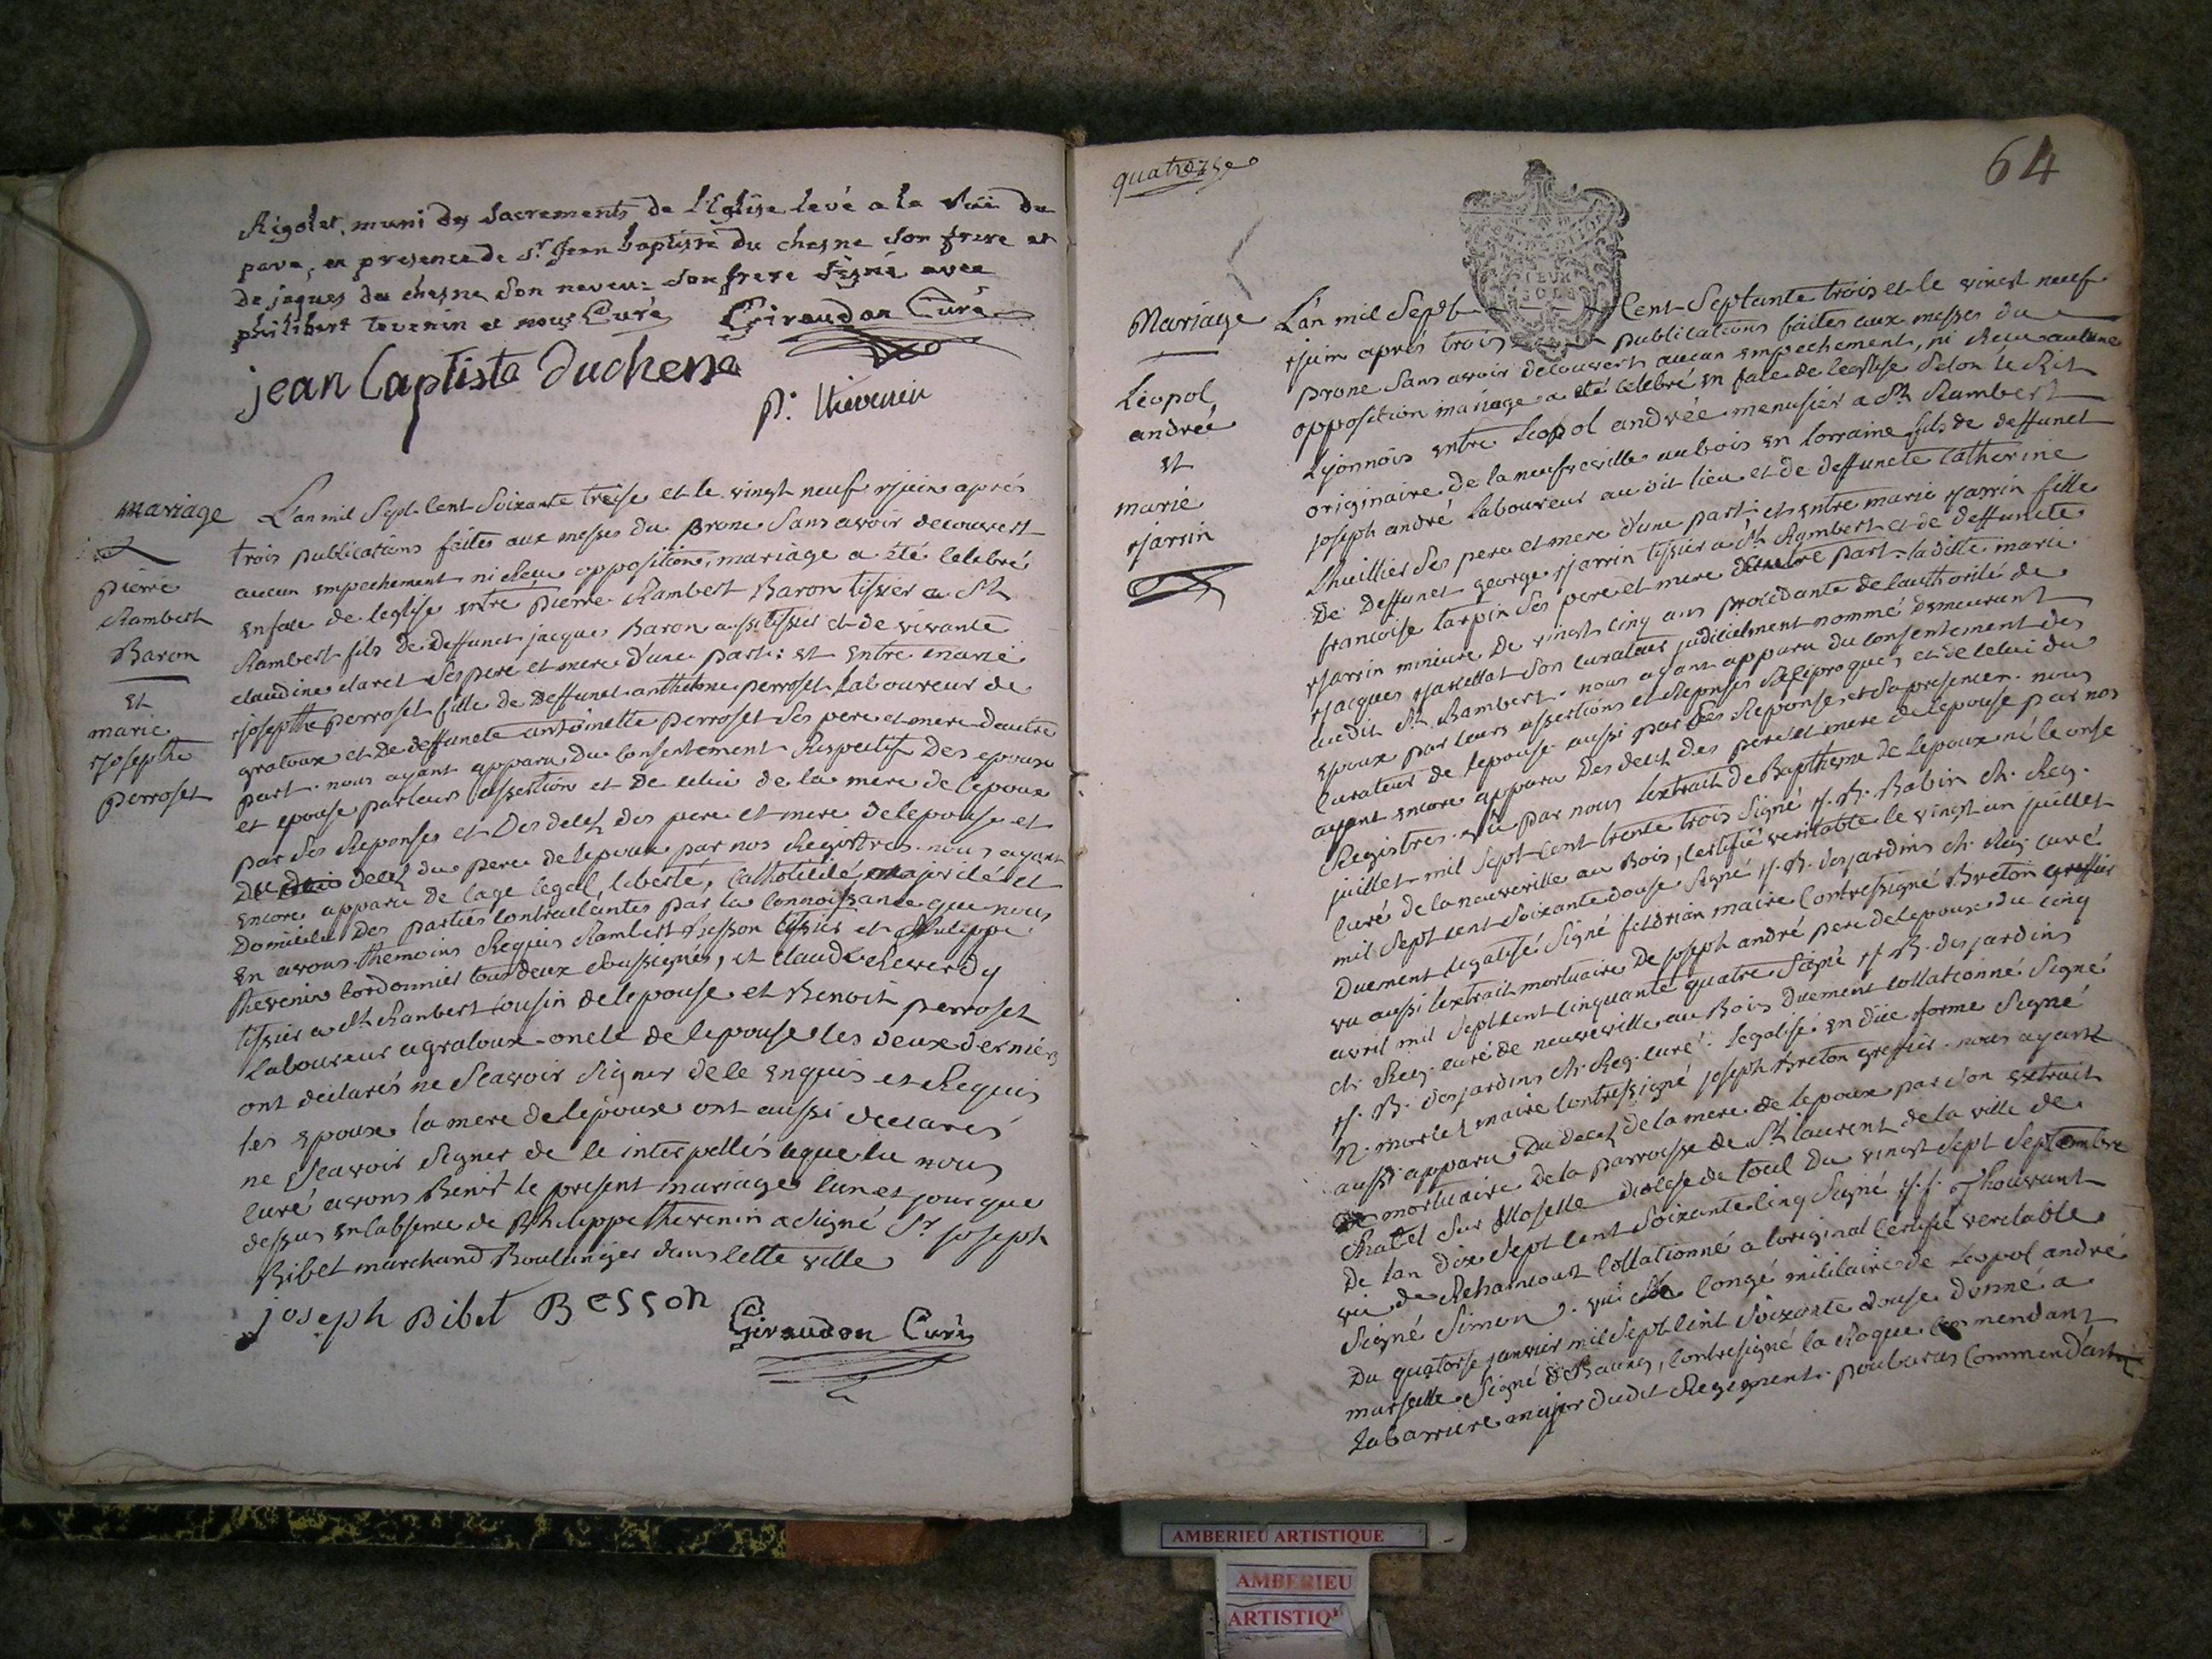 Rigolet, muni des Sacrements de l'Eglise levé a la Vüe du
pavé, en presence de Sr. Jean baptiste du chesne son frere et
de jaques du chesne son neveu: son frere signé avec
philibert tevenin et nous Curé Giraudon Curé
jean baptiste duchene
p. thevenin
mariage
pierre
Rambert
Baron
et
marie
josephe
perroset
L'an mil Sept Cent Soixante treise et le vingt neuf juin après
trois publications faites aux messes du prone Sans avoir decouvert
aucun empechement ni Reçu opposition, mariage a été Celebré
en face de leglise entre pierre Rambert Baron tissier a St
Rambert fils de deffunct jacques Baron aussi tissier et de vivante
claudine claret Ses pere et mere d'une part: et entre marie
josephe perroset fille de deffunct anthelme perroset Laboureur de
gratoux et de deffuncte antoinette perroset Ses pere et mere dautre
part. nous ayant apparu du Consentement Respectif des epoux
et epouse par leurs assertion et de celui de la mere de lepoux
par Ses Reponses et des decez des pere et mere de lepouse et
du decez du pere de lepoux par nos Registres. nous ayant
encore apparu de lage legal, liberté, Catholicité, majorité et
Domicile des parties Contractantes par la Connoissance que nous
en avons. themoins Requis Rambert Besson tissier et philippe
thevenin Cordonnier tous deux soussignés, et claude Reverdy
tissier a St Rambert Cousin de lepouse et Benoit perroset
Laboureur a gratoux oncle de lepouse les deux derniers
ont declarés ne Scavoir Signer de ce enquis et Requis
les epoux la mere de lepoux ont aussi declarés
ne Scavoir Signer de ce interpellés que nous
curé avons Benit le present mariage lan et jour que
dessus en labsence de philippe thevenin a signé Sr joseph
Bibet marchand Boulanger dans cette ville
joseph Bibet Besson
Giraudon Curé
quatorze
64
Mariage
Léopol
andreé
et
marie
jarrin
L'an mil Sept Cent Septante trois et le vingt neuf
juin après trois publications faites aux messes du
prone Sans avoir decouvert aucun empechement, ni Reçu aucune
opposition mariage a été celebré en face de leglise Selon le Rit
Lyonnois entre Leopol andrée menusier a St Rambert
originaire de la neufveville au bois en lorraine fils de deffunct
joseph andré Laboureur au dit lieu et de deffuncte Catherine
Lhuillier Ses pere et mere d'une part: et entre marie jarrin fille
De Deffunct george jarrin tissier a St Rambert et de deffuncte
francoise tarpin Ses pere et mere dautre part. la ditte marie
jarrin mineure de vingt cinq ans procedante de lauthorité de
jacques son curateur judicielment nommé demeurant
audit St Rambert. nous ayant apparu du Consentement des
epoux par leurs assertions et Reponses Reciproques et de celui du
Curateur de lepouse aussi par Ses Reponses et Sa presence. nous
ayant encore apparu des decez des pere et mere de lepouse par nos
Registres. vu par nous lextrait de Baptheme de lepoux né le onse
juillet mil Sept Cent trente trois Signé j. B. Babin ch. Reg.
Curé de la neuveville au Bois, Certifié veritable le vingt un juillet
mil Sept cent Soixante douse Signé j. B. desjardins ch. Reg. curé
Duement legalisé Signé maire Contresigné Breton greffier
vu aussi lextrait mortuaire de joseph andré pere de lepoux du cinq
avril mil Sept cent cinquante quatre Signé j. B. des jardins
ch. Reg. curé de neuveville au Bois duement collationné Signé
j. B. desjardins ch. Reg. curé. legalisé en düe forme Signé
n. maire Contresigné joseph Breton greffier. nous ayant
aussi apparu du decez de la mere de lepoux par son extrait
mortuaire de la parroisse de St laurent de la ville de
Chatel Sur Moselle diocese de toul du vingt Sept Septembre
De lan dix Sept Cent Soixante cinq Signé j. f. Thouvant
vic de Rehaincourt Collationné a loriginal Certifié veritable
Signé Simon. vu le Congé militaire de Leopol andré
Du quatorse janvier mil Sept Cent Soixante douse donné a
marseille Signé Contresigné la Roque Commendant
Labarriere major dudit Regiment. Commendant
AMBERIEU ARTISTIQUE
AMBERIEU
ARTISTIQ